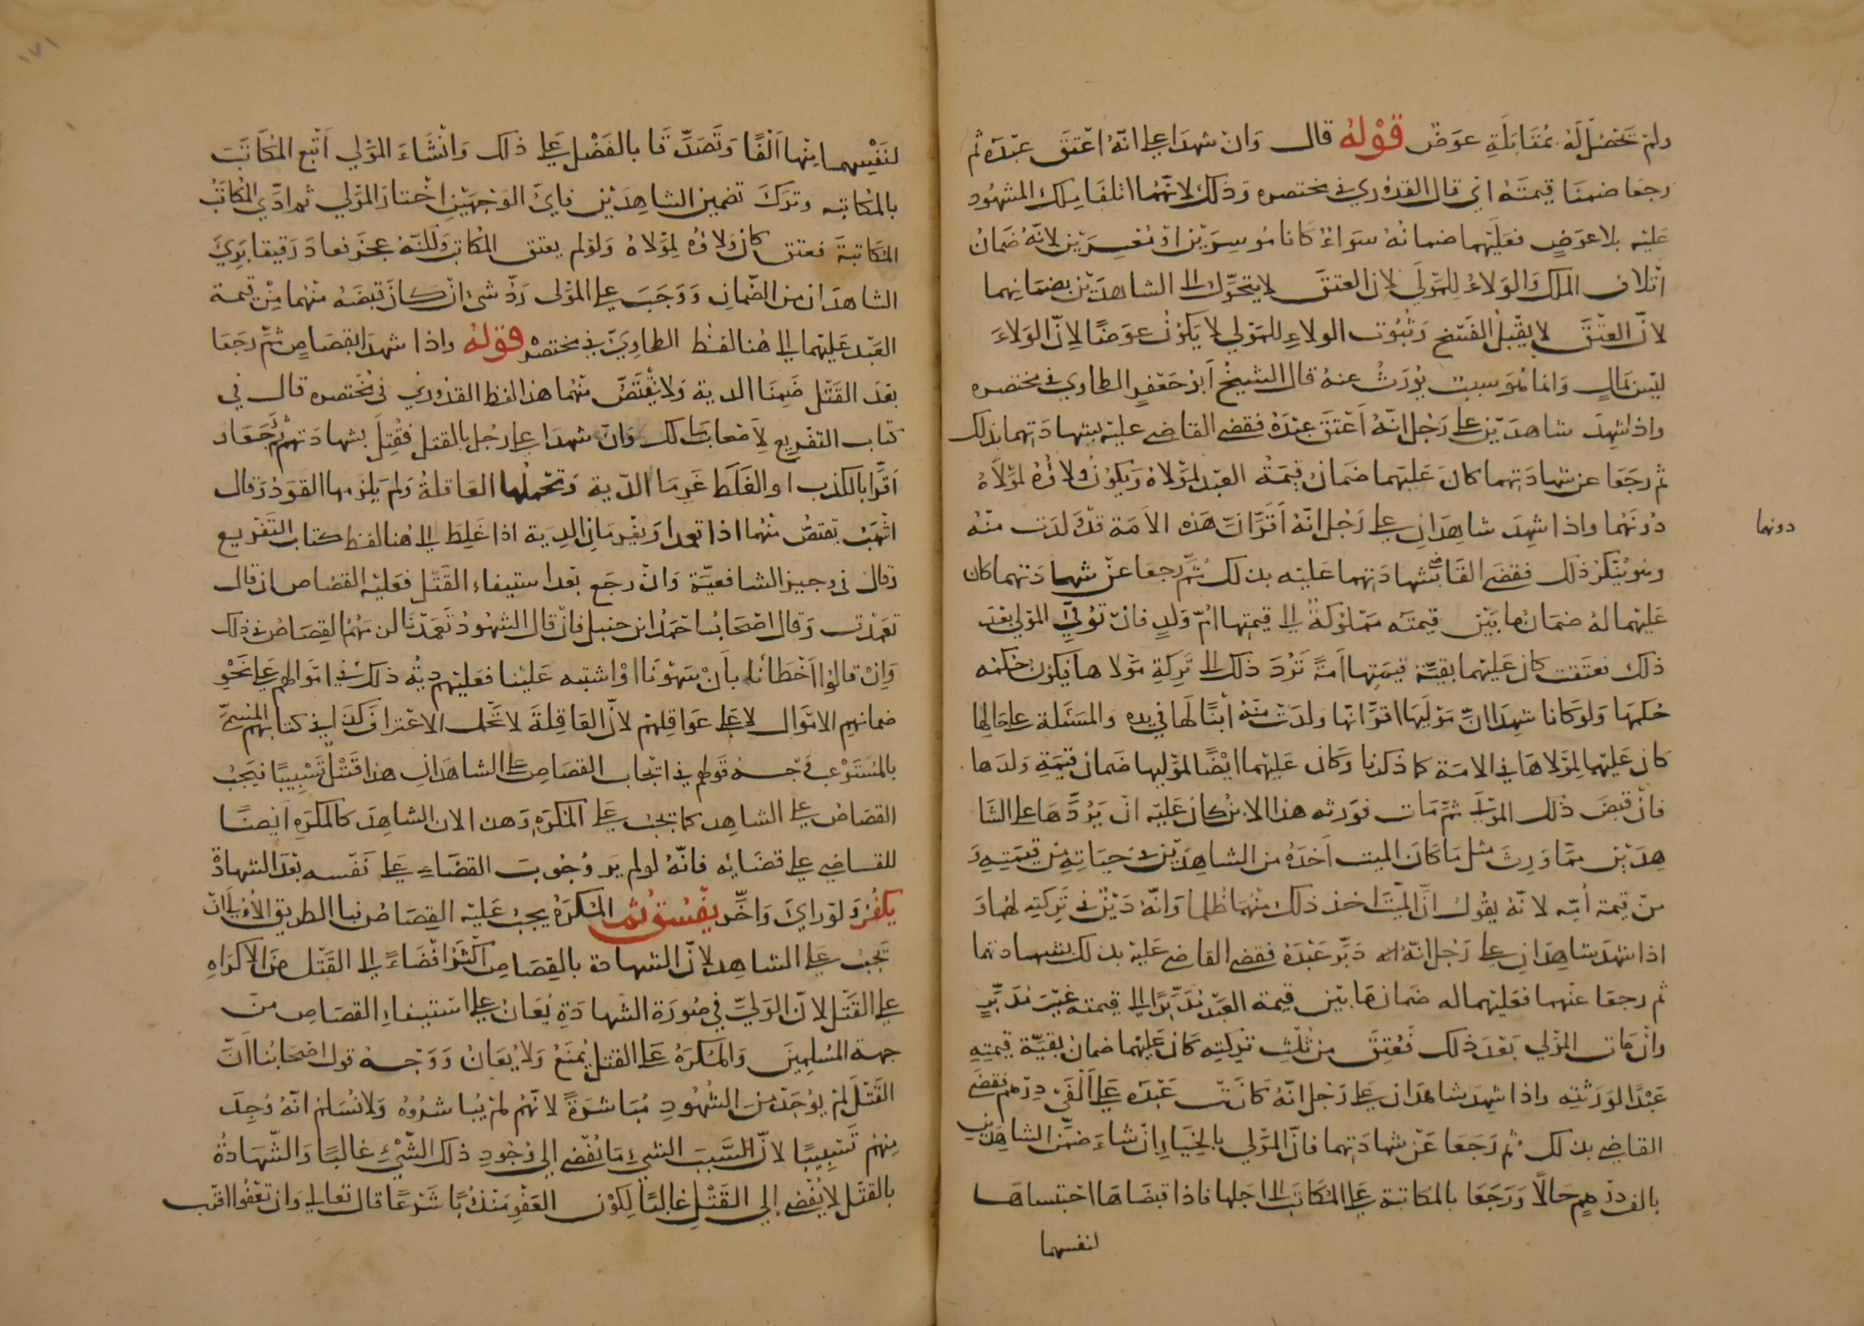 ولم تحصل له بمقابلة عوض قوله قال وان شهدا على انه اعتق عبده ثم
رجعا ضمنا قيمته اي قال القدوري في مختصره وذلك لانهما اتلفا ملك المشهود
عليه بلا عوض فعليهما ضمانه سواء كانا موسرين او معسرين لانه ضمان
اتلاف الملك والولاء للمولي لان العتق لا يتحول الى الشاهدين بضمانهما
لان العتق لا يقبل الفسخ وثبوت الولاء للمولي لا يكون عوضا لان الولاء
ليس بمال وانما هو سبب يورث عنه قال الشيخ ابو جعفر الطاوي في مختصره
واذا شهد شاهدين على رجل انه اعتق عبده فقضى القاضي عليه بشهادتهما بذلك
ثم رجعا عن شهادتهما كان عليهما ضمان قيمة العبد لمولاه ويكون ولاؤه لمولاه
دونهما واذا شهد شاهدان على رجل انه اقر ان هذه الامة قد ولدت منه
وهو ينكر ذلك فقضى القاضي بشهادتهما عليه بذلك ثم رجعا عن شهادتهما كان
عليهما له ضمان ما بين قيمته مملوكة الى قيمتها ام ولد فان توفي المولي بعد
ذلك فعتقت كان عليهما بقية قيمتها امة ترد ذلك الى تركة مولاها فيكون حكمه
حكمها ولو كانا شهدا ان موليها اقر انها ولدت منه ابنا لها في يده والمسئلة على حالها
كان عليهما لمولاها في الامة كما ذكرنا وكان عليهما ايضا لموليها ضمان قيمة ولدها
فان قبض ذلك المولى ثم مات فورثه هذا الابن كان عليه ان يردها على الشا
هدين مما ورث مثل ما كان الميت اخذه من الشاهدين في حياته من قيمته و
من قيمة امه لانه يقول ان الميت اخذ ذلك منهما ظلما وانه دين في تركته لهما و
اذا شهد شاهدان على رجل انه دبر عبده فقضى القاضي عليه بذلك بشهادتهما
ثم رجعا عنهما فعليهما له ضمان ما بين قيمة العبد مدبرا الى قيمته غير مدبر
وان مات المولي بعد ذلك فعتق من ثلث تركته كان عليهما ضمان بقية قيمته
عبدا لورثته واذا شهد شاهدان على رجل انه كاتب عبده على الفي درهم فقضى
القاضي بذلك ثم رجعا عن شهادتهما فان المولي بالخيار ان شاء ضمن الشاهدين
بالف درهم حالا ورجعا بالمكاتبة على المكاتب الى اجلها فاذا قبضاها احتبساها
لنفسهما
دونهما
لنفسهما منها الفا وتصدقا بالفضل على ذلك وان شاء المولي اتبع المكاتب
بالمكاتبه وترك تضمين الشاهدين فاي الوجهين اختار المولي ثم ادي المكاتب
المكاتبة فعتق كان ولاؤه لمولاه ولو لم يعتق المكاتب ولكنه عجز فعاد رقيقا بري
الشاهدان من الضمان ووجب على المولى رد شئ ان كان قبضه منهما من قيمة
العبد عليهما الى هنا لفظ الطاوي في مختصره قوله واذا شهدا بقصاص ثم رجعا
بعد القتل ضمنا الدية ولا يقتص منهما هذا لفظ القدوري في مختصره قال في
كتاب التفريع لاصحاب مالك وان شهدا على رجل بالقتل فقتل بشهادتهم ثم رجعا و
اقرا بالكذب او الغلط غرما الدية وتحملها العاقلة ولم يلزمها القود وقال
اشهب يقتص منهما اذا تعمدا ويغرمان الدية اذا غلط الى هنا لفظ كتاب التفريع
وقال في وجيز الشافعية وان رجع بعد استيفاء القتل فعليه القصاص ان قال
تعمدت وقال اصحاب احمد ابن حنبل فان قال الشهود تعمدنا لزمهم القصاص في ذلك
وان قالوا اخطأنا بان سهونا او اشتبه علينا فعليهم دية ذلك في اموالهم على نحو
ضمانهم الاموال لا على عواقلهم لان العاقلة لا تحمل الاعتراف كذا في كتابهم المسمى
بالمستوعب وجه قولهم في ايجاب القصاص على الشاهد ان هذا قتل تسبيبا فيجب
القصاص على الشاهد كما يجب على المكره وهذا لان الشاهد كالمكره ايضا
للقاضي على قضائه فانه لو لم ير وجوب القضاء على نفسه بعد الشهادة
يكفر ولو راي واخر يفسق ثم المكره يجب عليه القصاص فبالطريق الاولى ان
تجب على الشاهد لان الشهادة بالقصاص اكثر افضاء الى القتل من الاكراه
على القتل لان الولي في صورة الشهادة يعان على استيفاء القصاص من
جهة المسلمين والمكره على القتل يمنع ولا يعان ووجه قول اصحابنا ان
القتل لم يوجد من الشهود مباشرة لانهم لم يباشروه ولا نسلم انه وجد
منهم تسبيبا لان السبب الشيء ما يفضي الى وجود ذلك الشيء غالبا والشهادة
بالقتل لا يفضي الى القتل غالبا لكون العفو مندوبا شرعا قال تعالى وان تعفوا اقرب